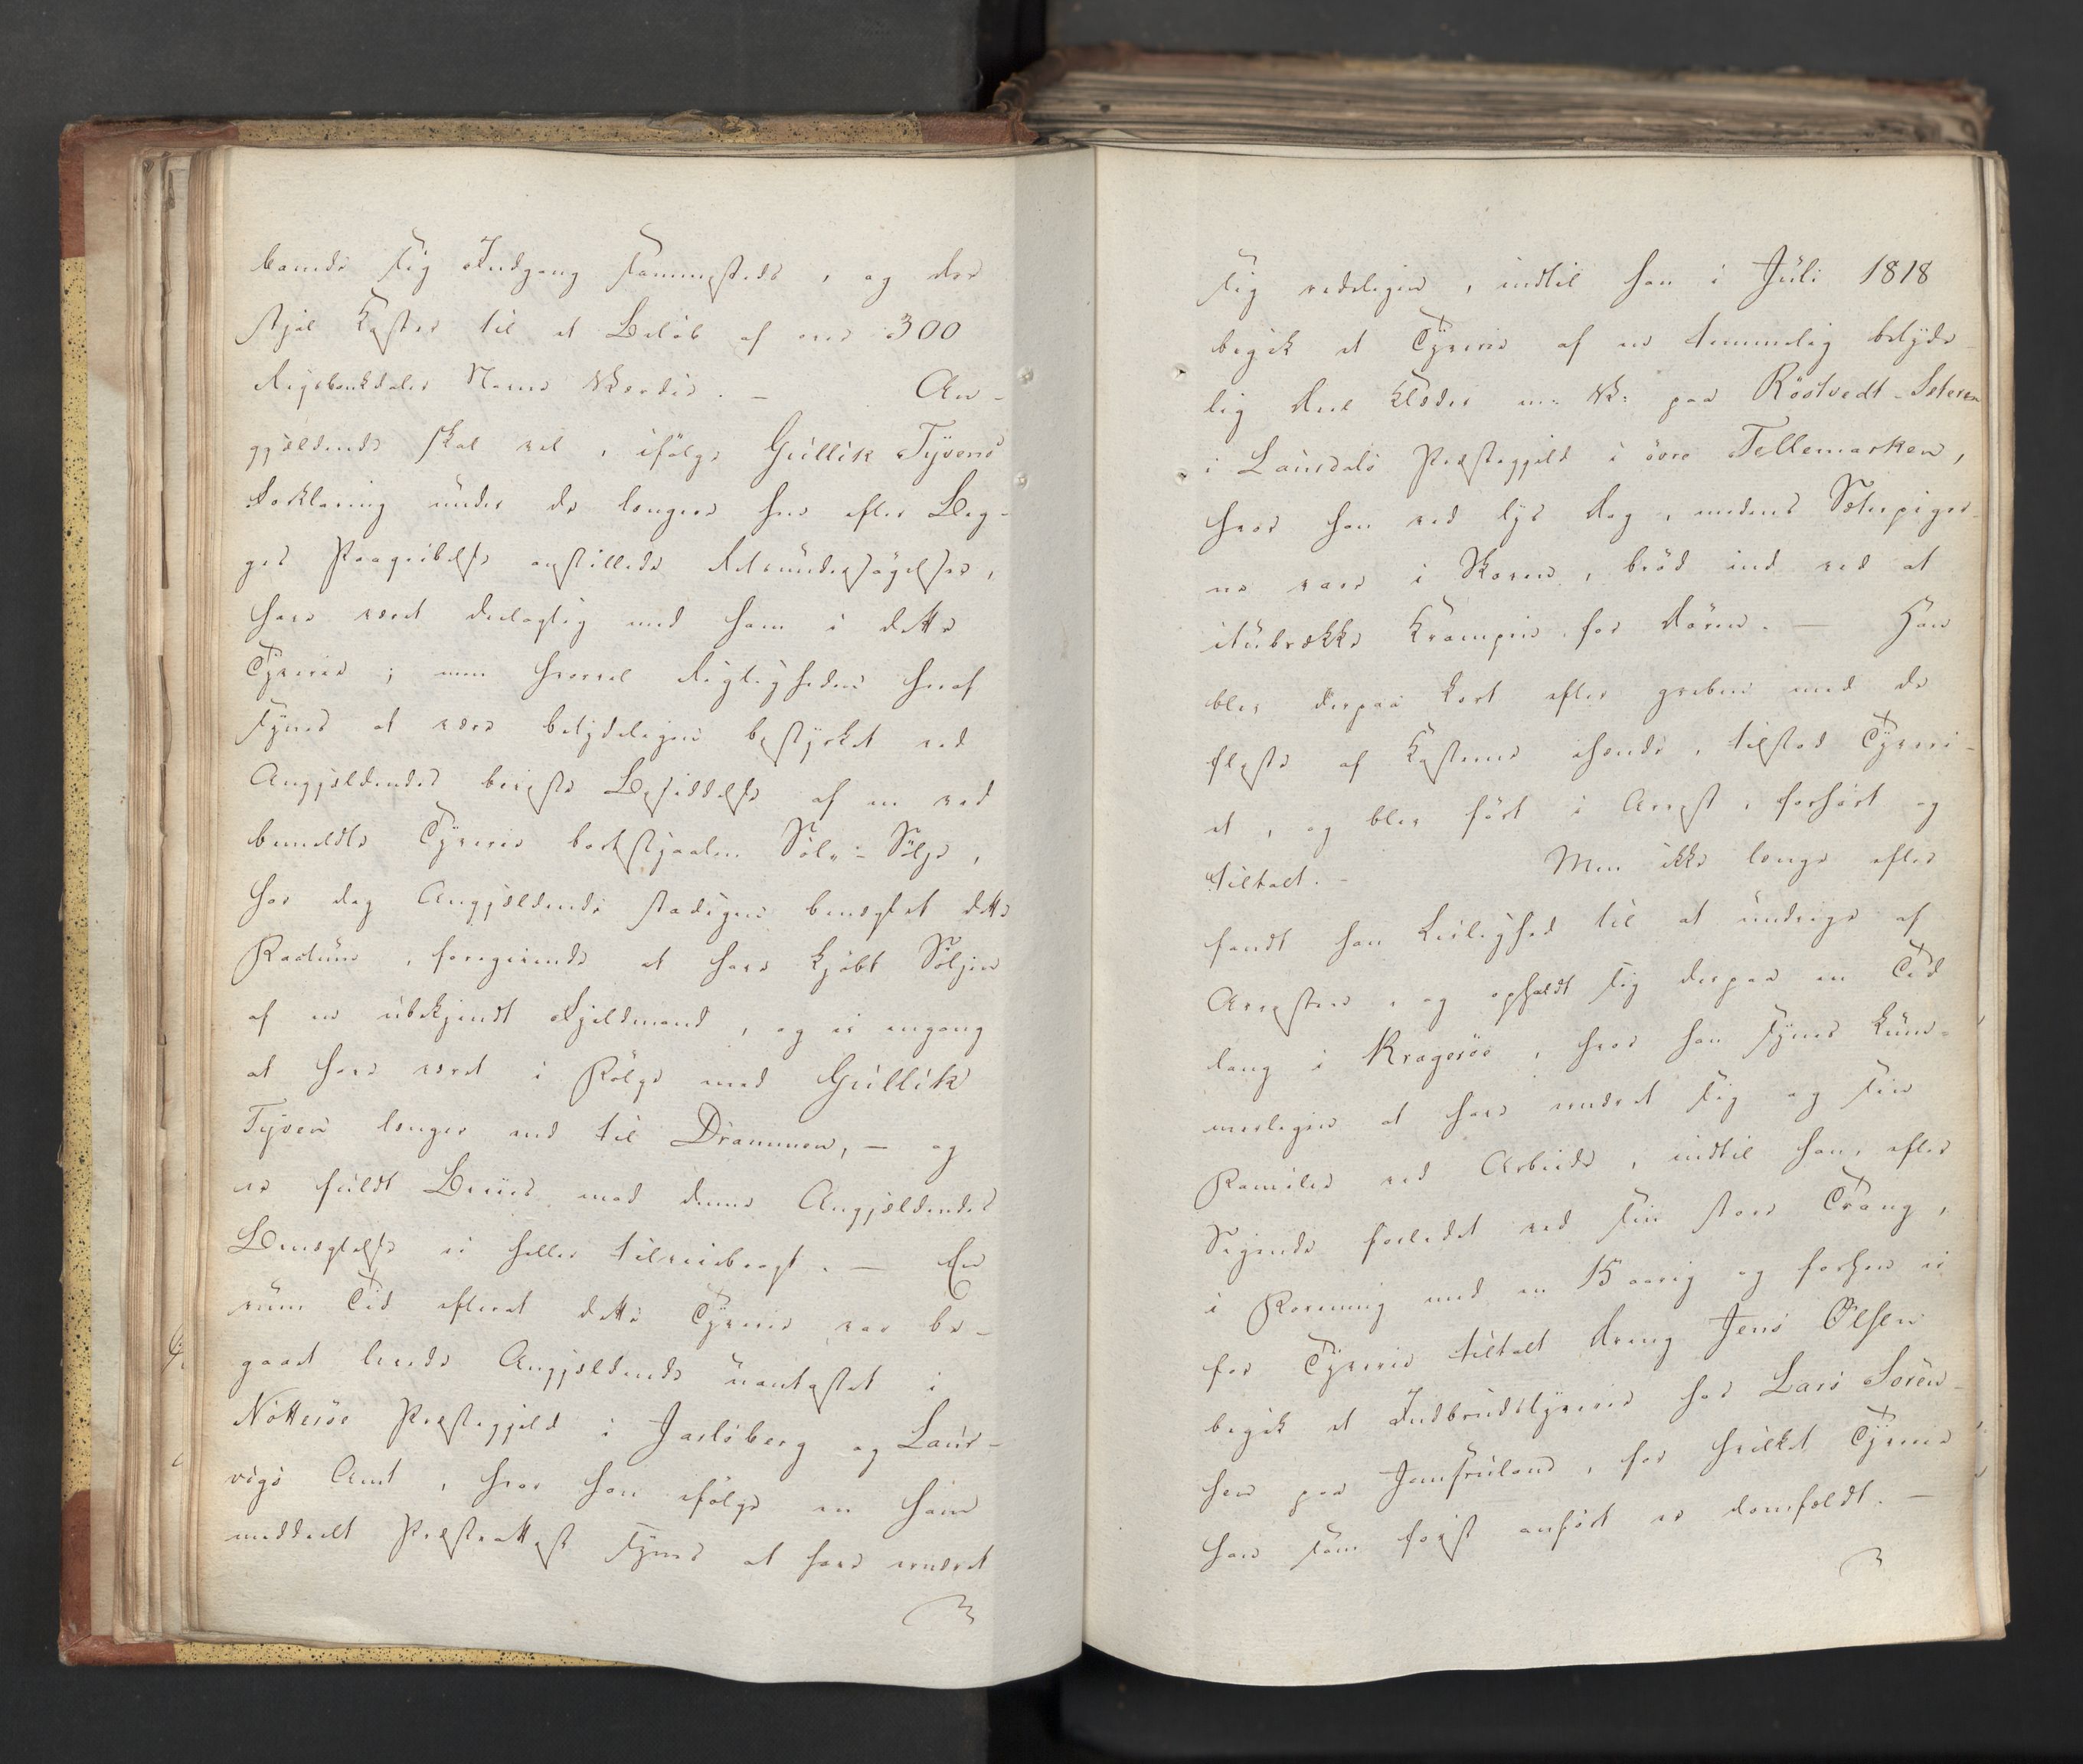 banede sig Indgang sammesteds, og der
stjal Koster til et Beløb af over 300
Rigsbankdaler Navne Værdie. – An-
gjeldende skal vel, ifølge Gullik Tyvens
Forklaring under de længere hen efter Beg-
ges Paagribelse anstillede Retsundersøgelser,
have været deelagtig med ham i dette
Tyverie; men hvorvel Rigtigheden heraf
synes at være betydeligen bestyrket ved
Angjeldendes beviiste Besiddelse af en ved
bemeldte Tyverie bortstjaalen Sølv-Sølje,
har dog Angjeldende stadigen benægtet dette
Factum, foregivende at have kjøbt Søljen
af en ubekjendt Fjeldmand, og ei engang
at have været i Følge med Gullik
Tyven længer end til Drammen, – og
er fuldt Beviis mod denne Angjeldendes
Benægtelse ei heller tilveiebragt. – En
rum Tid efterat dette Tyverie var be-
gaaet levede Angjeldende uantastet i
Nötteröe Præstegjeld i Jarlsberg og Laur-
vigs Amt, hvor han ifølge en ham
meddeelt Præsteattest synes at have ernæret
sig redeligen, indtil han i Juli 1818
begik et Tyverie af en temmelig betyde-
lig Deel Klæder m: V: paa Röstvedt-Seteren
i Laurdals Præstegjeld i övre Tellemarken,
hvor han ved lys Dag, medens Sæterpiger-
ne vare i Skoven, brød ind ved at
itubrække Krampen for Døren. – Han
blev derpaa kort efter greben med de
fleste af Kosterne ihænde, tilstod Tyveri-
et, og blev ført i Arrest, forhørt og
tiltalt. – Men ikke længe efter
fandt han Leilighed til at undvige af
Arresten, og opholdt sig derpaa en Tid
lang i Kragerøe, hvor han synes küm-
merligen at have ernæret sig og sin
Familie ved Arbeide, indtil han, efter
Sigende forledet ved sin store Trang,
i Forening med en 15 aarig og forhen ei
for Tyverie tiltalt Dreng Jens Olsen
begik et Indbrudstyverie hos Lars Sören-
sen paa Jomfruland, for hvilket Tyverie
han som først anført er domfældt. –